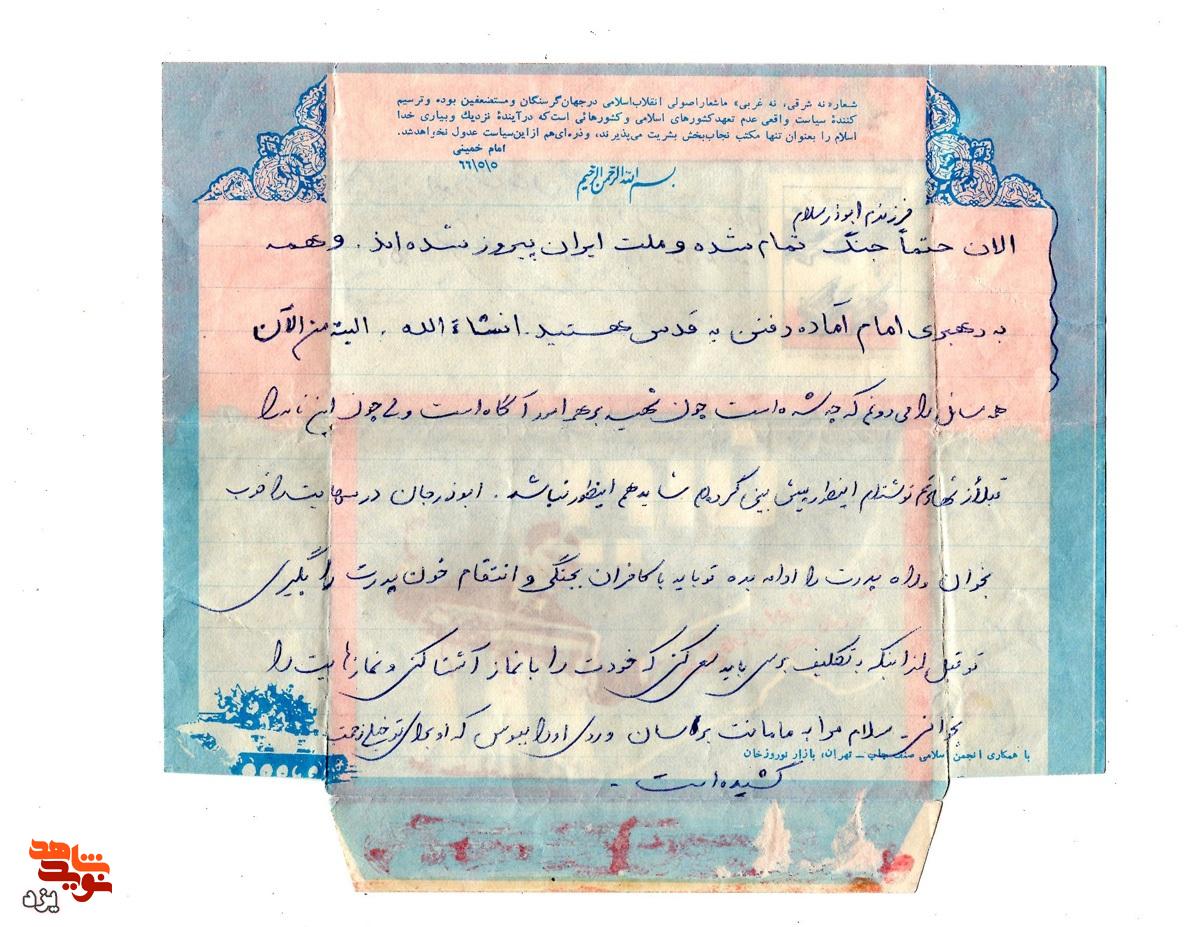 شعار «نه شرقی، نه غربی» ما شعار اصولی انقلاب اسلامی در جهان گرسنگان و مستضعفین بوده و ترسیم
کنندۀ سیاست واقعی عدم تعهد کشورهای اسلامی و کشورهائی است که در آیندۀ نزدیك و بیاری خدا
اسلام را بعنوان تنها مکتب نجات‌بخش بشریت می‌پذیرند، و ذره‌ای هم از این سیاست عدول نخواهد شد.
امام خمینی
۶۶/۵/۵
بسم الله الرحمن الرحیم
فرزندم ابوذر سلام
الان حتماً جنگ تمام شده و ملت ایران پیروز شده اند. و همه
به رهبری امام آماده رفتن به قدس هستید. انشاءالله. البته من الآن
همه مسائل را می دونم که چه شده است چون شهید بر همه امور آگاه است ولی چون این نامه را
قبل از شهادتم نوشته‌ام اینطور پیش بینی کرده‌ام شاید هم اینطور نباشد. ابوذر جان درسهایت را خوب
بخوان و راه پدرت را ادامه بده تو باید با کافران بجنگی و انتقام خون پدرت را بگیری
تو قبل از اینکه به تکلیف برسی باید سعی کنی که خودت را با نماز آشنا کنی و نمازهایت را
بخوانی. سلام مرا به مامانت برسان و روی او را ببوس که او برای تو خیلی زحمت
کشیده است.
با همکاری انجمن اسلامی صنف چاپ ـ تهران، بازار نوروزخان
نوید شاهد
یزد